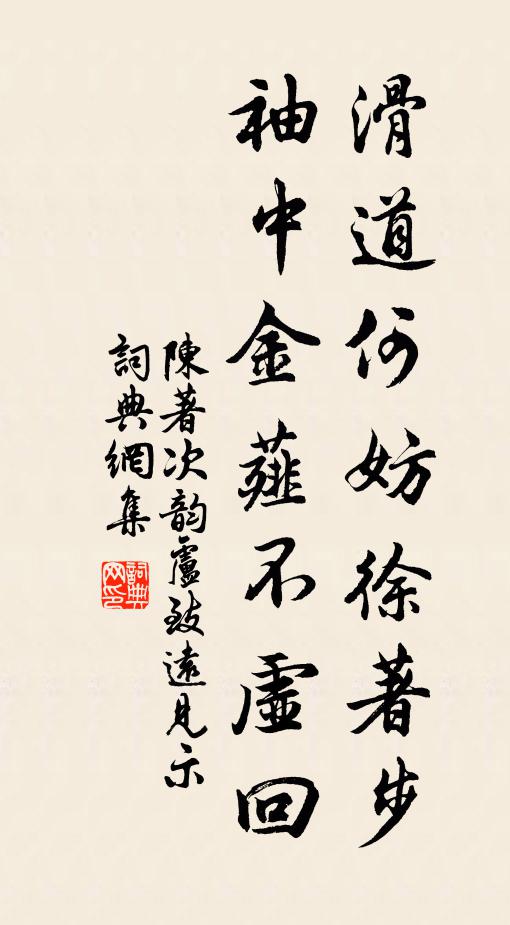 滑道何妨徐著步
袖中金薤不虛回
陳著次韵盧致遠見示
詞典網集
詞典网印